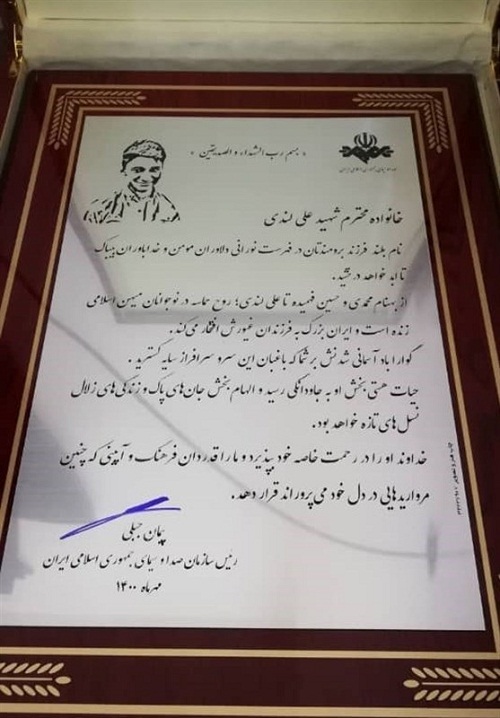 « بسم رب الشهداء و الصدیقین »
خانواده محترم شهید علی لندی
نام بلند فرزند برومندتان در فهرست نورانی دلاوران مومن و خداباوران بیباک
تا ابد خواهد درخشید.
از بهنام محمدی و حسین فهمیده تا علی لندی؛ روح حماسه در نوجوانان میهن اسلامی
زنده است و ایران بزرگ به فرزندان غیورش افتخار می‌کند.
گوارا باد آسمانی شدنش بر شما که باغبان این سرو سرافراز سایه گسترید.
حیات هستی بخش او به جاودانگی رسید و الهام بخش جان‌های پاک و زندگی‌های زلال
نسل‌های تازه خواهد بود.
خداوند او را در رحمت خاصه خود بپذیرد و ما را قدردان فرهنگ و آیینی که چنین
مرواریدهایی در دل خود می‌پروراند قرار دهد.
پیمان جبلی
رئیس سازمان صدا و سیمای جمهوری اسلامی ایران
مهرماه ۱۴۰۰